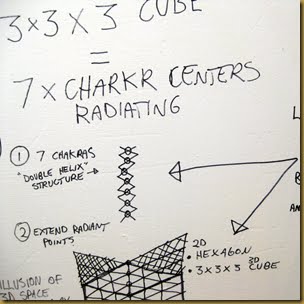 3x3x3 CUBE
=
7 x CHARKR CENTERS
RADIATING
① 7 CHAKRAS
"DOUBLE HELIX"
STRUCTURE
② EXTEND RADIANT
POINTS
2D
• HEXAGON
• 3x3x3 3D CUBE
ILLUSION OF
3D SPACE